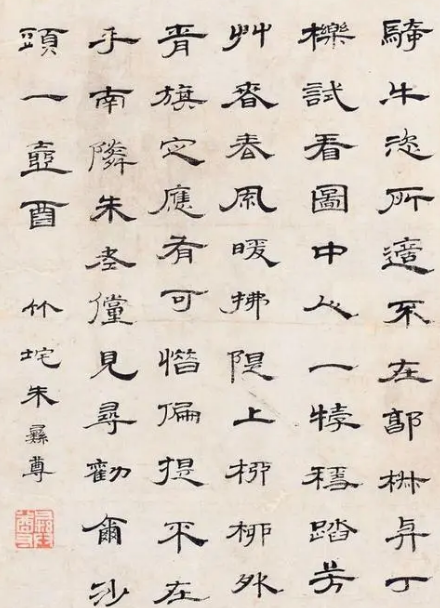 騎牛恣所適不在郭椒與丁
櫟試看圖中人一犢穩踏芳
艸香春風暖拂隄上柳柳外
青旗定應有可惜偏提不在
手南隣朱老儻見尋勸爾沙
頭一壺酉 竹垞朱彝尊